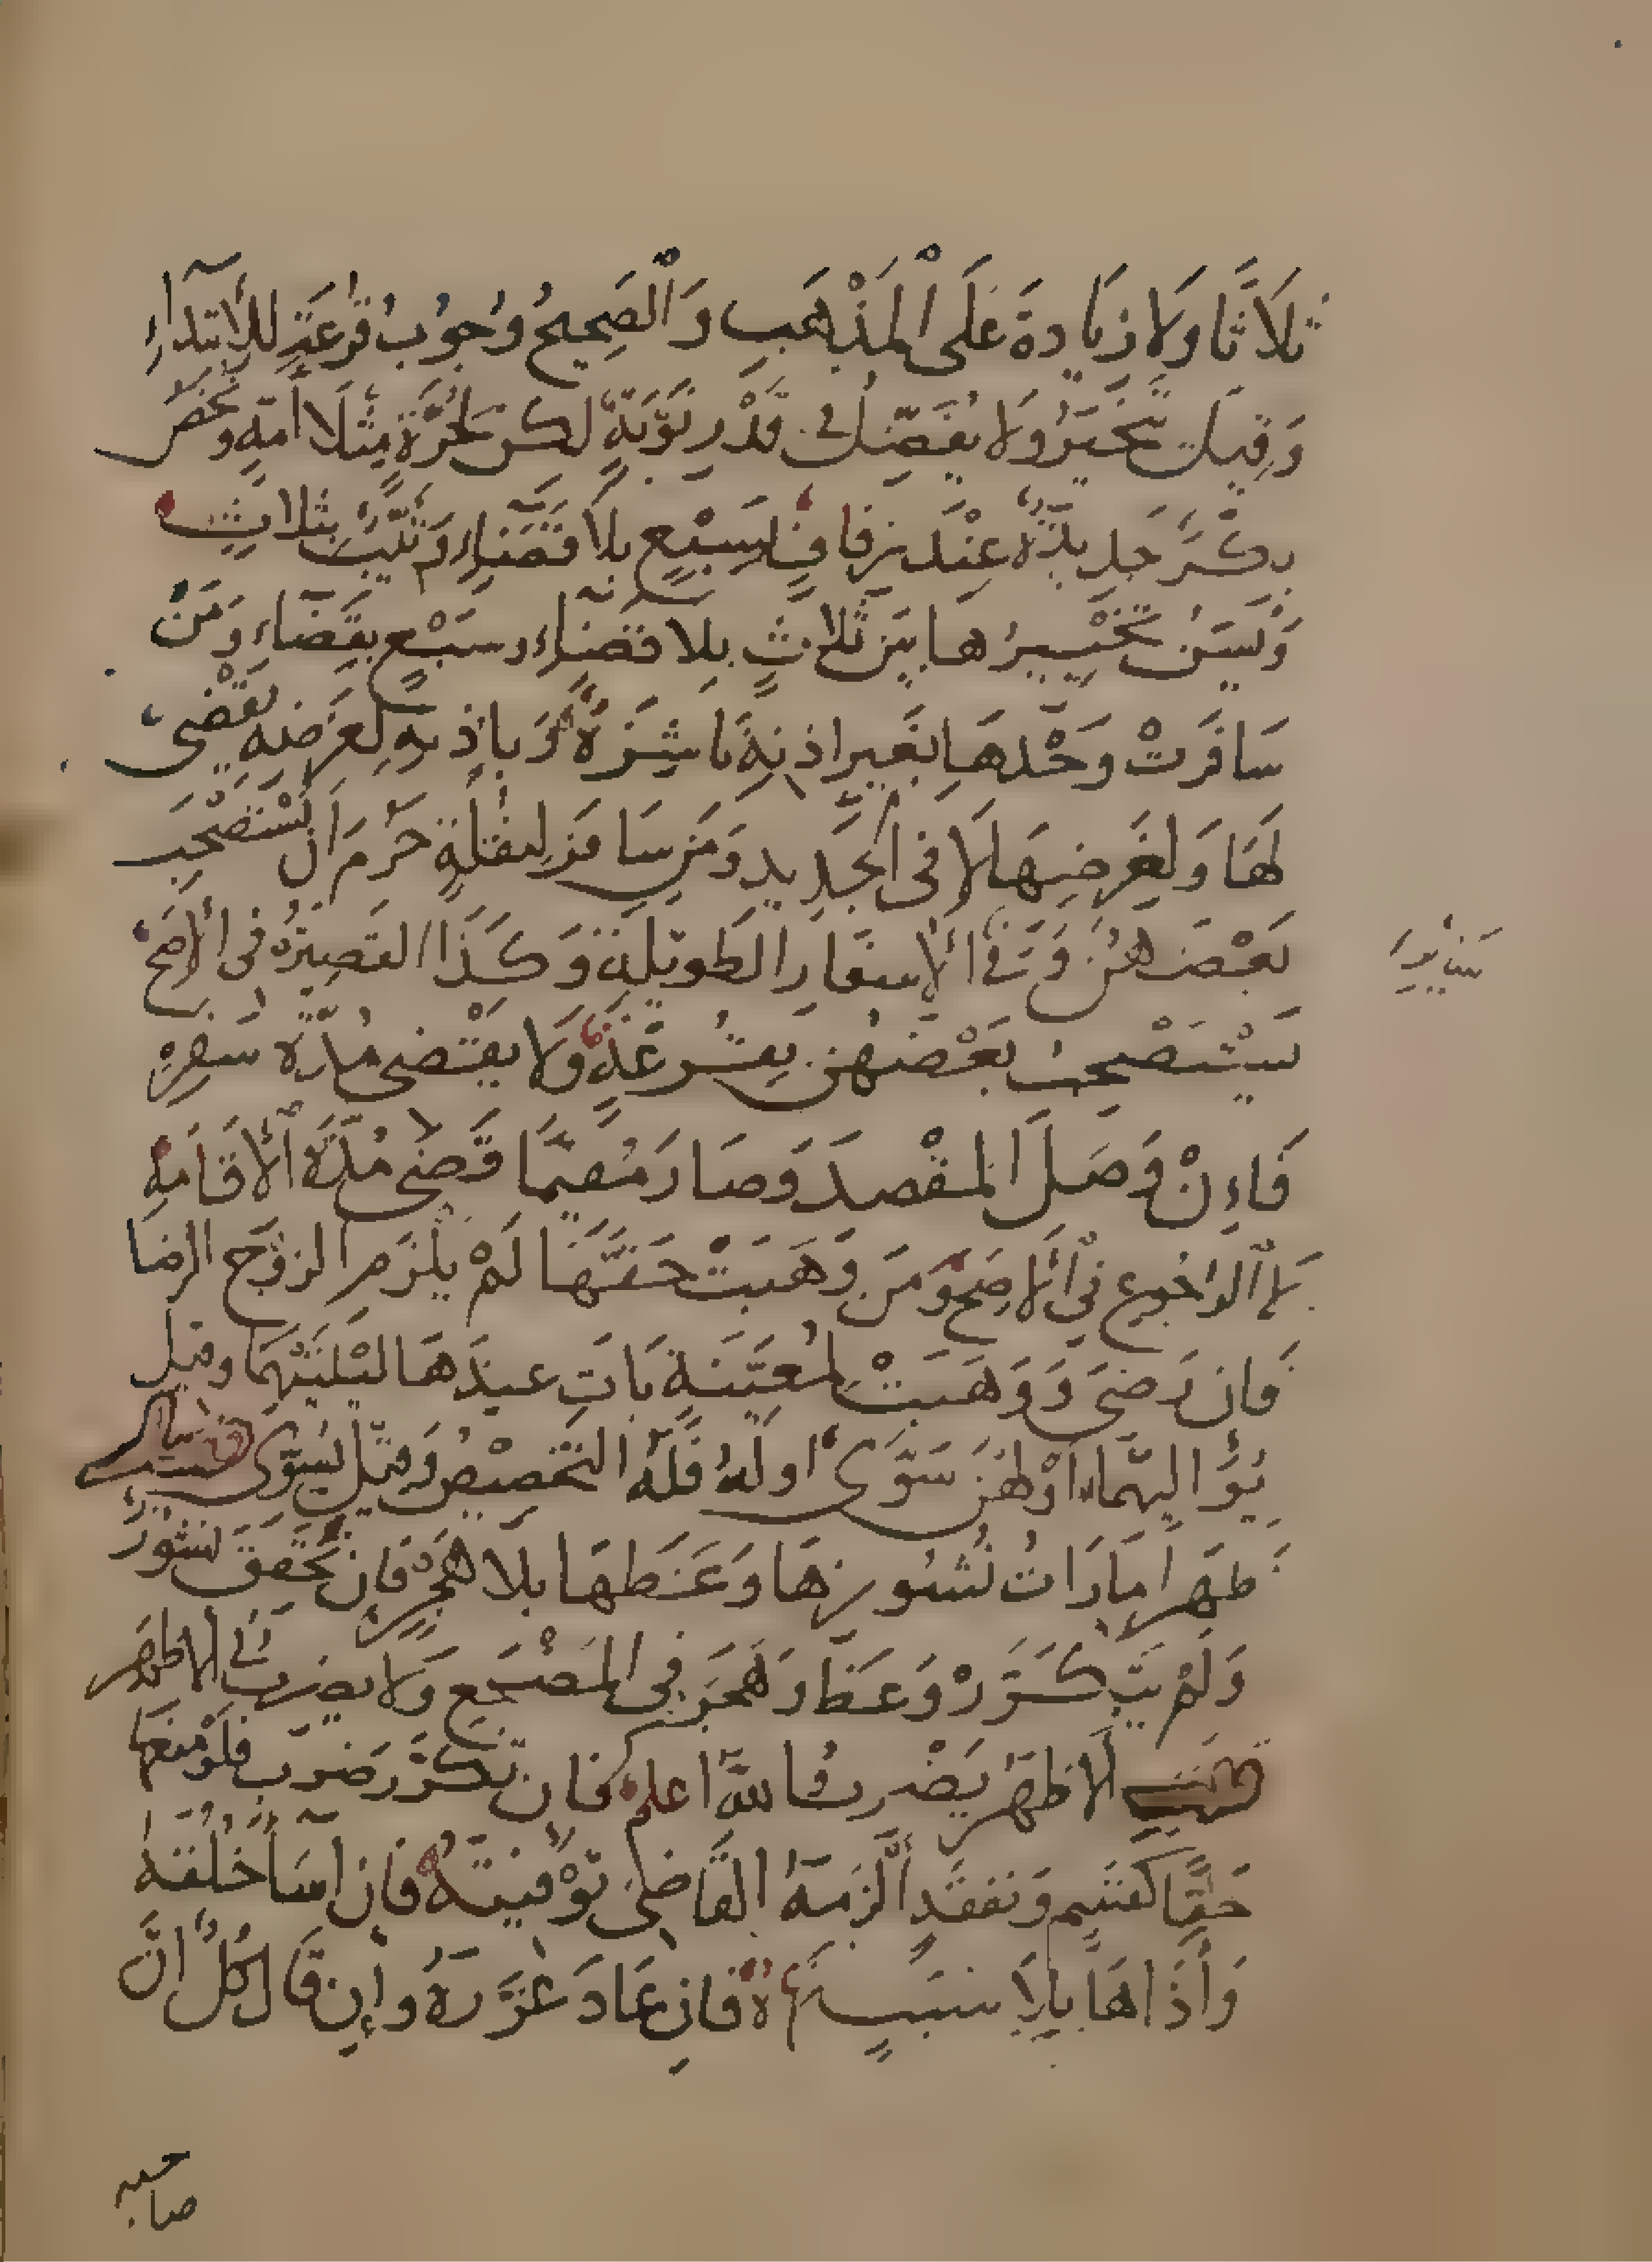 ثلاثا ولا زيادة على المذهب والصحيح وجوب قرعة للابتداء
وقيل يتخير ولا يفضل في قدر نوبة لكن لحرة مثلا امة وتختص
بكر جديدة عند زفاف بسبع بلا قضاء وثيب بثلاث
ويسن تخييرها بين ثلاث بلا قضاء وسبع بقضاء ومن
سافرت وحدها بغير اذنه ناشزة وباذنه لغرضه يقضى
لها ولغرضها لا في الجديد ومن سافر لنقلة حرم ان يستصحب
بعضهن وفي الاسفار الطويلة وكذا القصيرة في الاصح
يستصحب بعضهن بقرعة ولا يقضى مدة سفره
فاءن وصل المقصد وصار مقيما قضى مدة الاقامة
لا الرجوع في الاصح ومن وهبت حقها لم يلزم الزوج الرضا
فان رضى ووهبت لمعينة بات عندها ليلتيهما وقيل
يواليهما او لهن سوى او له فله التخصيص وقيل يسوى فصل
ظهر امارات نشوزها وعظها بلا هجر فان تحقق نشوز
ولم يتكرر وعظ وهجر في المضجع ولا يضرب في الاظهر
قلت الاظهر يضرب والله اعلم فان تكرر ضرب فلو منعها
حقا كقسم ونفقة الزمه القاضى توفيته فان اسا خلقه
واذاها بلا سبب نهاه فان عاد عزره وان قال كل ان
صاحبه